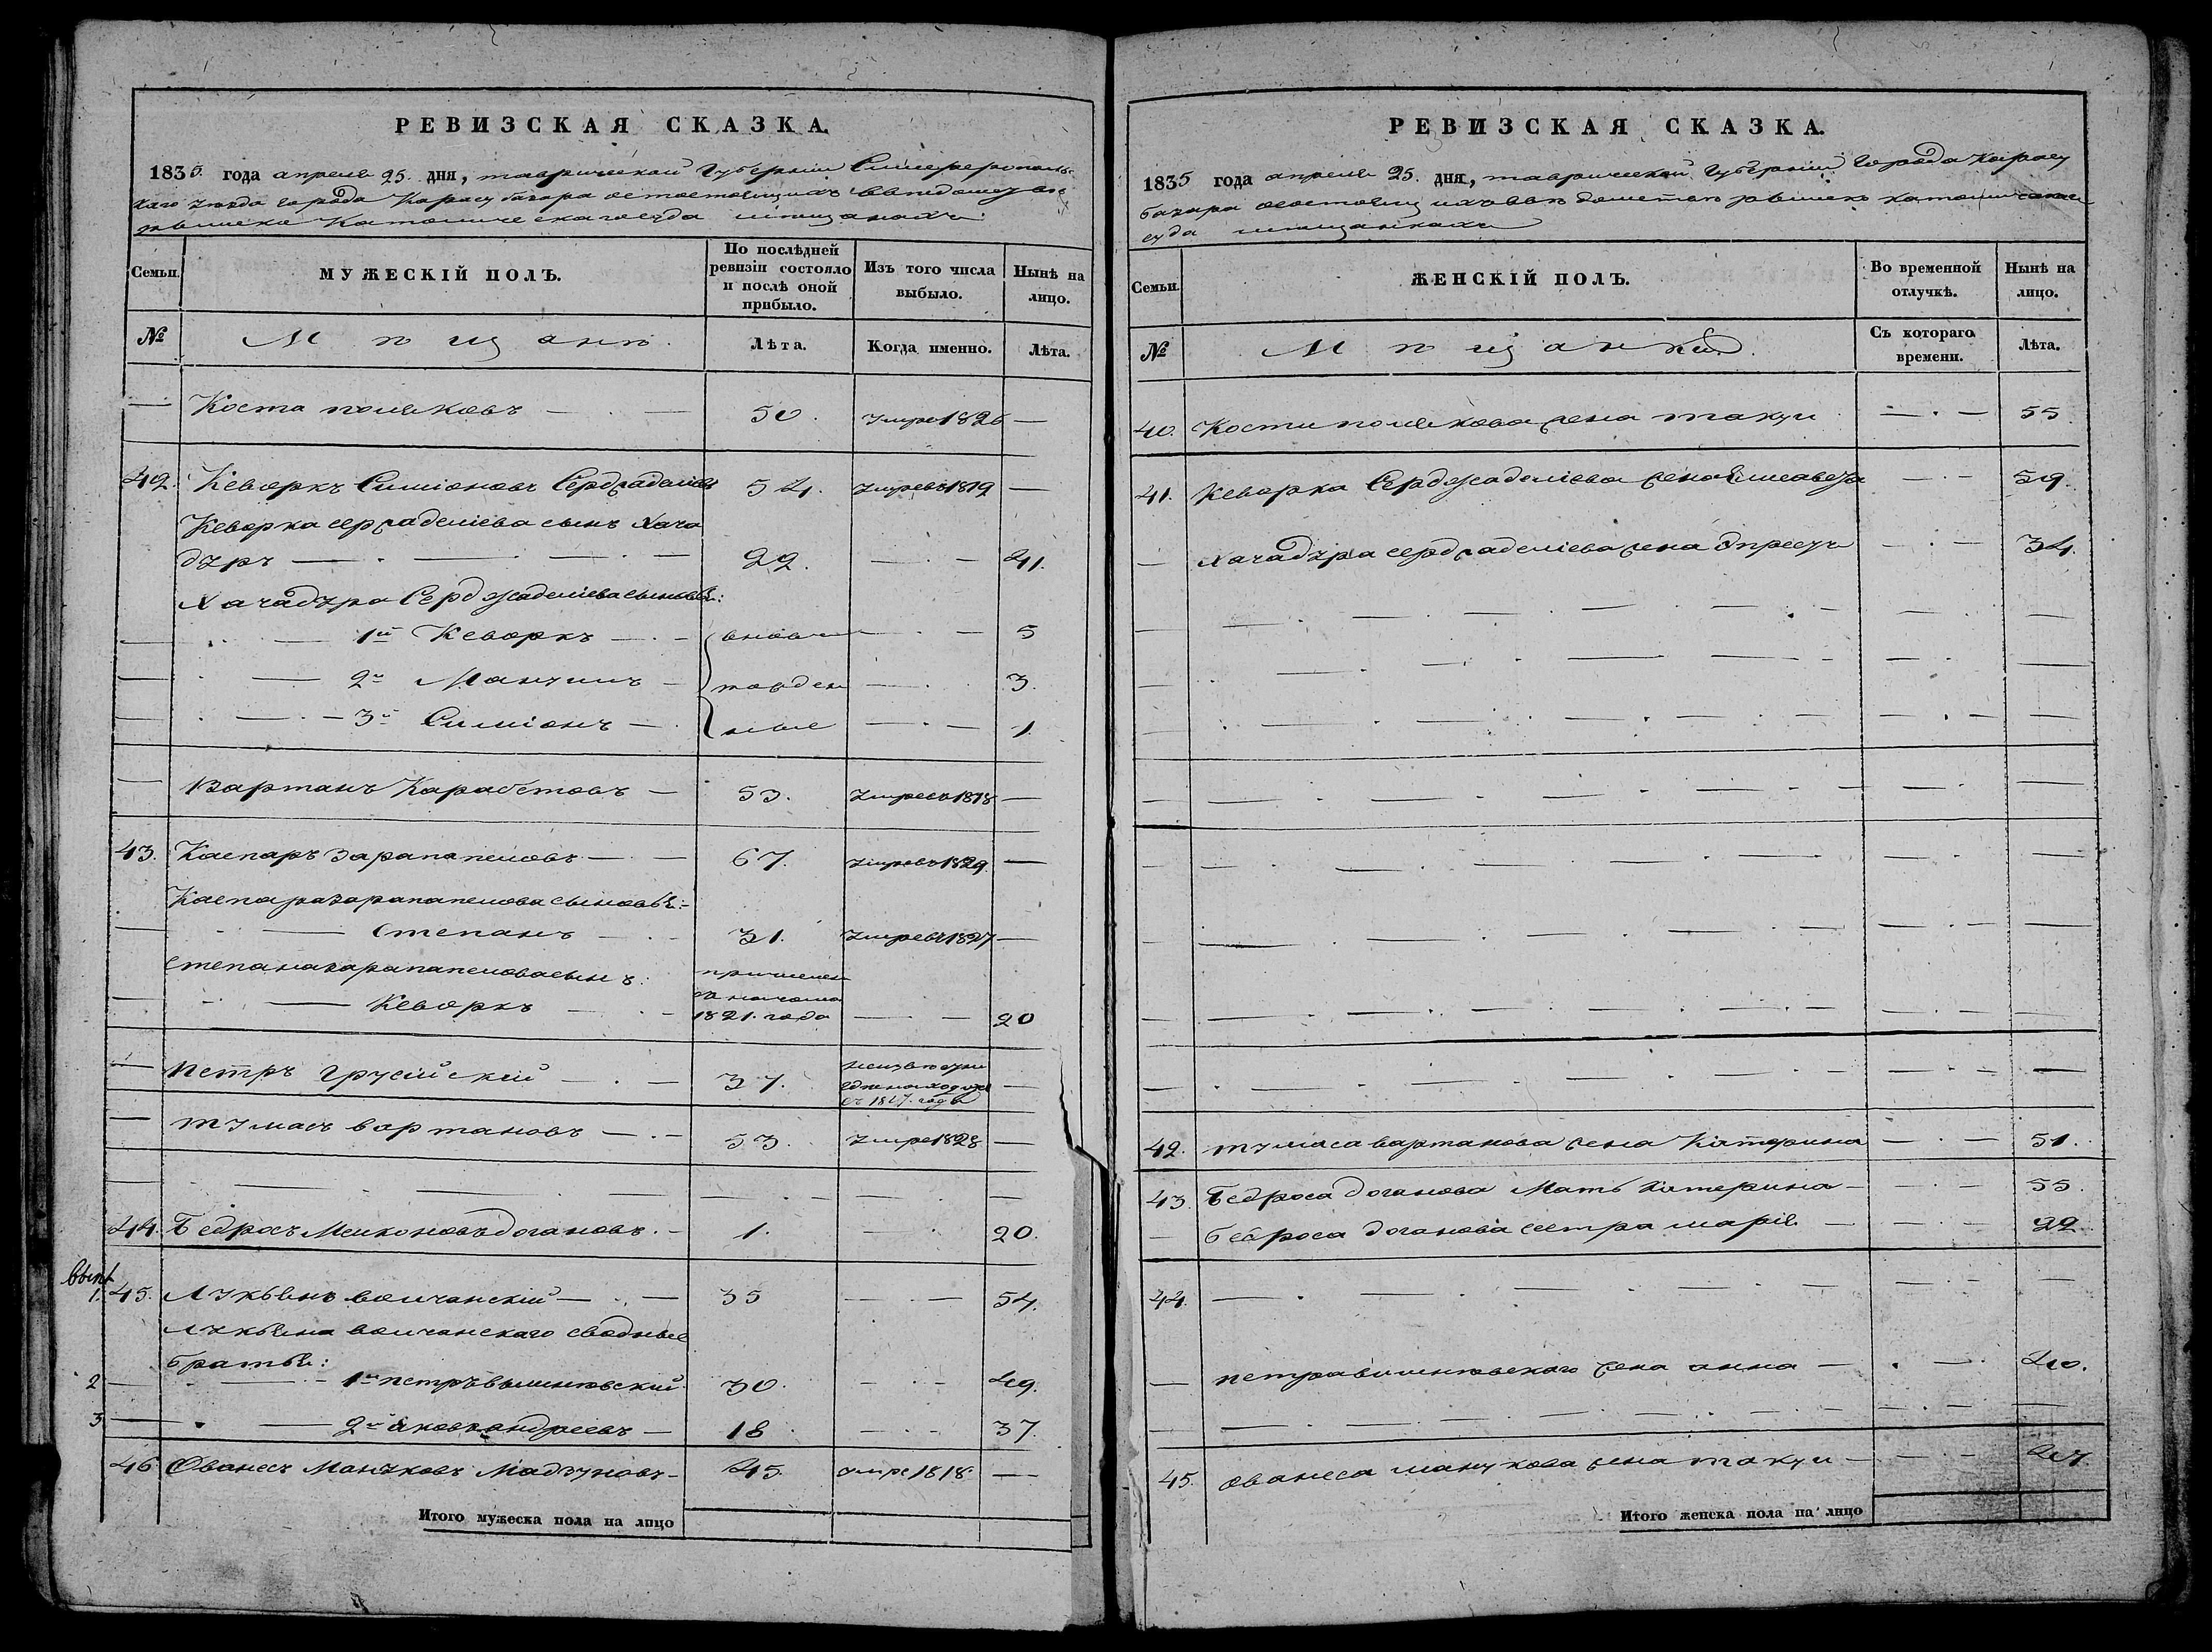 РЕВИЗСКАЯ СКАЗКА.
1835. года апреля 25. дня, таврической Губернии Симферополь-
скаго уезда города Карасубазара о состоящихъ в ведомстве
католическаго суда мещанахъ:
Семьи.
МУЖЕСКІЙ ПОЛЪ.
По послѣдней ревизіи состояло и послѣ оной прибыло.
Изъ того числа выбыло.
Нынѣ на лицо.
№
Мѣщанѣ.
Лѣта.
Когда именно.
Лѣта.
— Коста поляковъ — 50. умре 1826 —
42. Кеворкъ Симіоновъ 54. умре въ 1819 —
Кеворка сынъ Хача
дуръ — 22. — 41.
Хачадура Серджаделіева сыновья:
— 1й Кеворкъ — вновь — 5
— 2й — рожден — 3.
— 3й Симіонъ — ные — 1
— Вартанъ Карабетовъ — 53. умре въ 1818 —
43. Каспаръ Зарапапеловъ — 67. умре въ 1829. —
Каспара Зарапапелова сыновья:
— Степанъ 31. умре въ 1827 —
Степана Зарапапелова сынъ:
— Кеворкъ 1821. года — 20
— Петръ Грусійскій — 37. съ 1817. года —
— тумасъ вортановъ — 53. умре 1828 —
44. Бедросъ Мелконовъ догановъ. — 1. — 20.
1. 45. Лукьянъ волчанскій — 35 — 54.
Лукьяна волчанскаго сводные
братья:
2 — 1й петръ вышневскій 30. — 49.
3 — 2й яковъ андреевъ — 18 — 37.
46 Ованесъ Мануковъ — 45. умре 1818. —
Итого мужеска пола на лицо
РЕВИЗСКАЯ СКАЗКА.
1835 года апреля 25. дня, таврической Губерніи Города Карасу
базара состоящихъ в ведомстве католическаго
суда мещанкахъ
Семьи.
ЖЕНСКІЙ ПОЛЪ.
Во временной отлучкѣ.
Нынѣ на лицо.
№
Мѣщанки.
Съ котораго времени.
Лѣта.
40. Кости полякова жена такуи — 55.
41. Кеворка Серджаделіева жена Елисавета — 59.
— Хачадура серджаделіева жена — 34.
42. тумаса вартанова жена Катерина — 51.
43. Бедроса доганова Мать Катерина — 55.
— бедроса доганова сестра марія — 22
44. —
— петра вишневскаго жена анна — 40.
45. ованеса манукова жена такуи — 47.
Итого женска пола на лицо